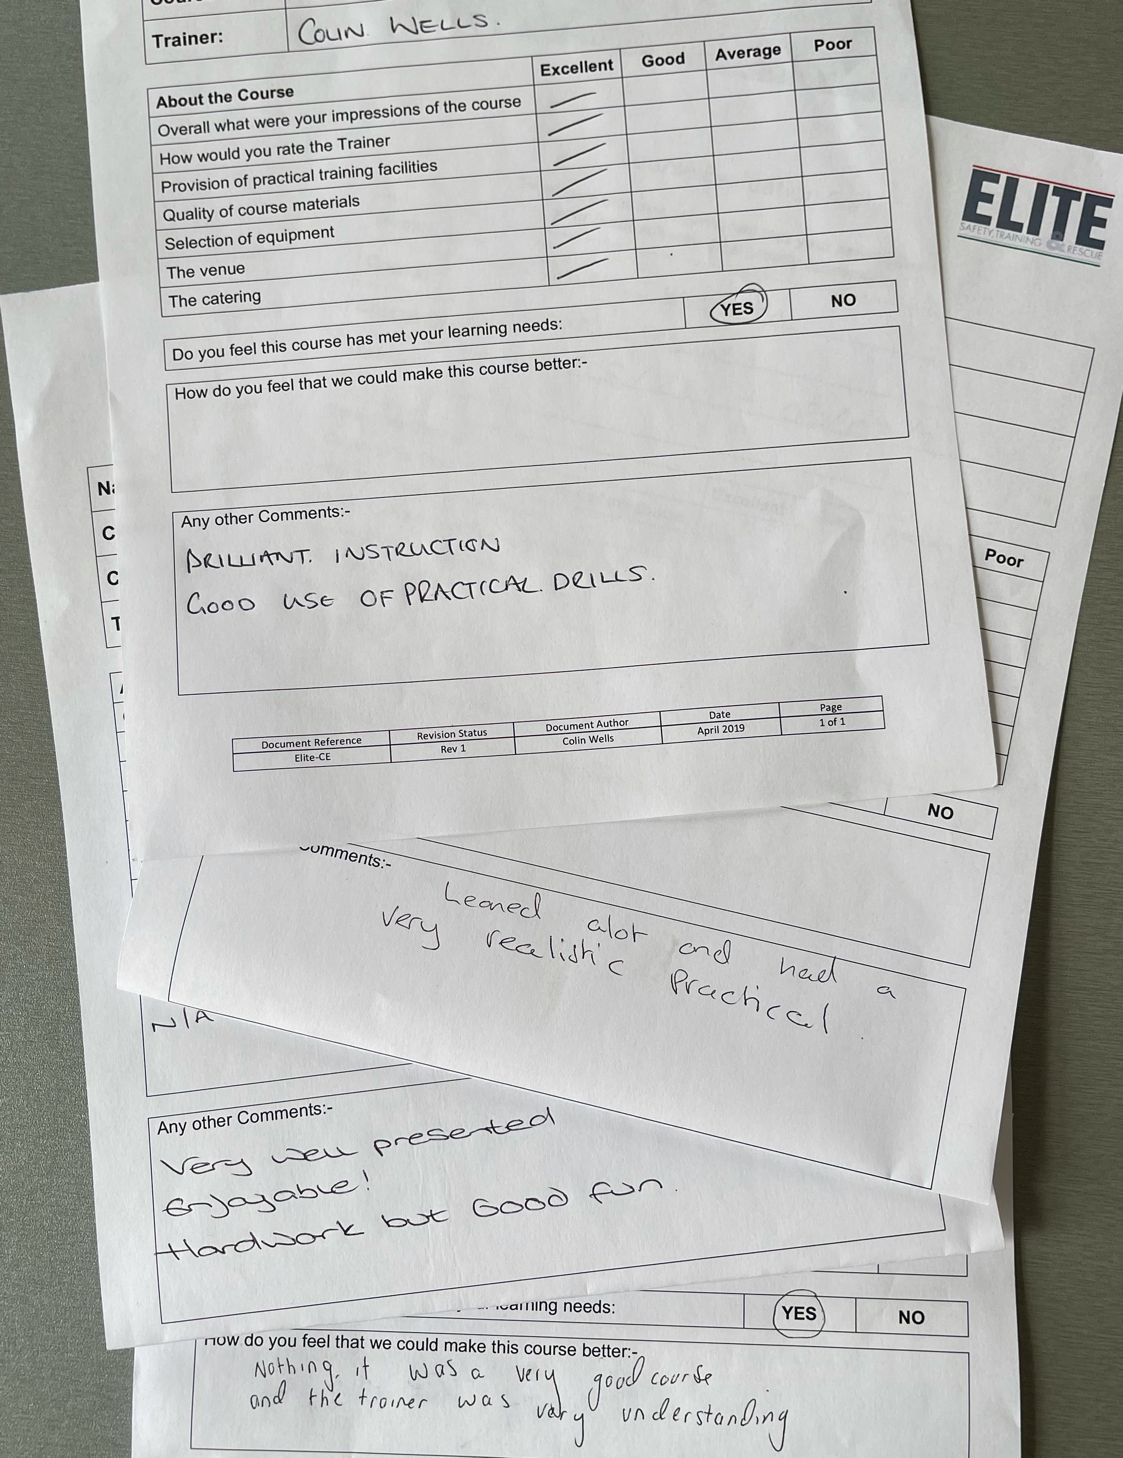 Trainer: COLIN WELLS.
About the Course Excellent Good Average Poor
Overall what were your impressions of the course
How would you rate the Trainer
Provision of practical training facilities
Quality of course materials
Selection of equipment
The venue
The catering
Do you feel this course has met your learning needs: YES NO
How do you feel that we could make this course better:-
Any other Comments:-
BRILLIANT. INSTRUCTION
GOOD USE OF PRACTICAL DRILLS.
Document Reference Revision Status Document Author Date Page
Elite-CE Rev 1 Colin Wells April 2019 1 of 1
ELITE
SAFETY TRAINING & RESCUE
Poor
NO
omments:-
Leaned alot and had a
very realistic Practical
N/A
Any other Comments:-
Very well presented
Enjoyable!
Hardwork but Good fun.
learning needs: YES NO
How do you feel that we could make this course better:-
Nothing, it was a very good course
and the trainer was very understanding